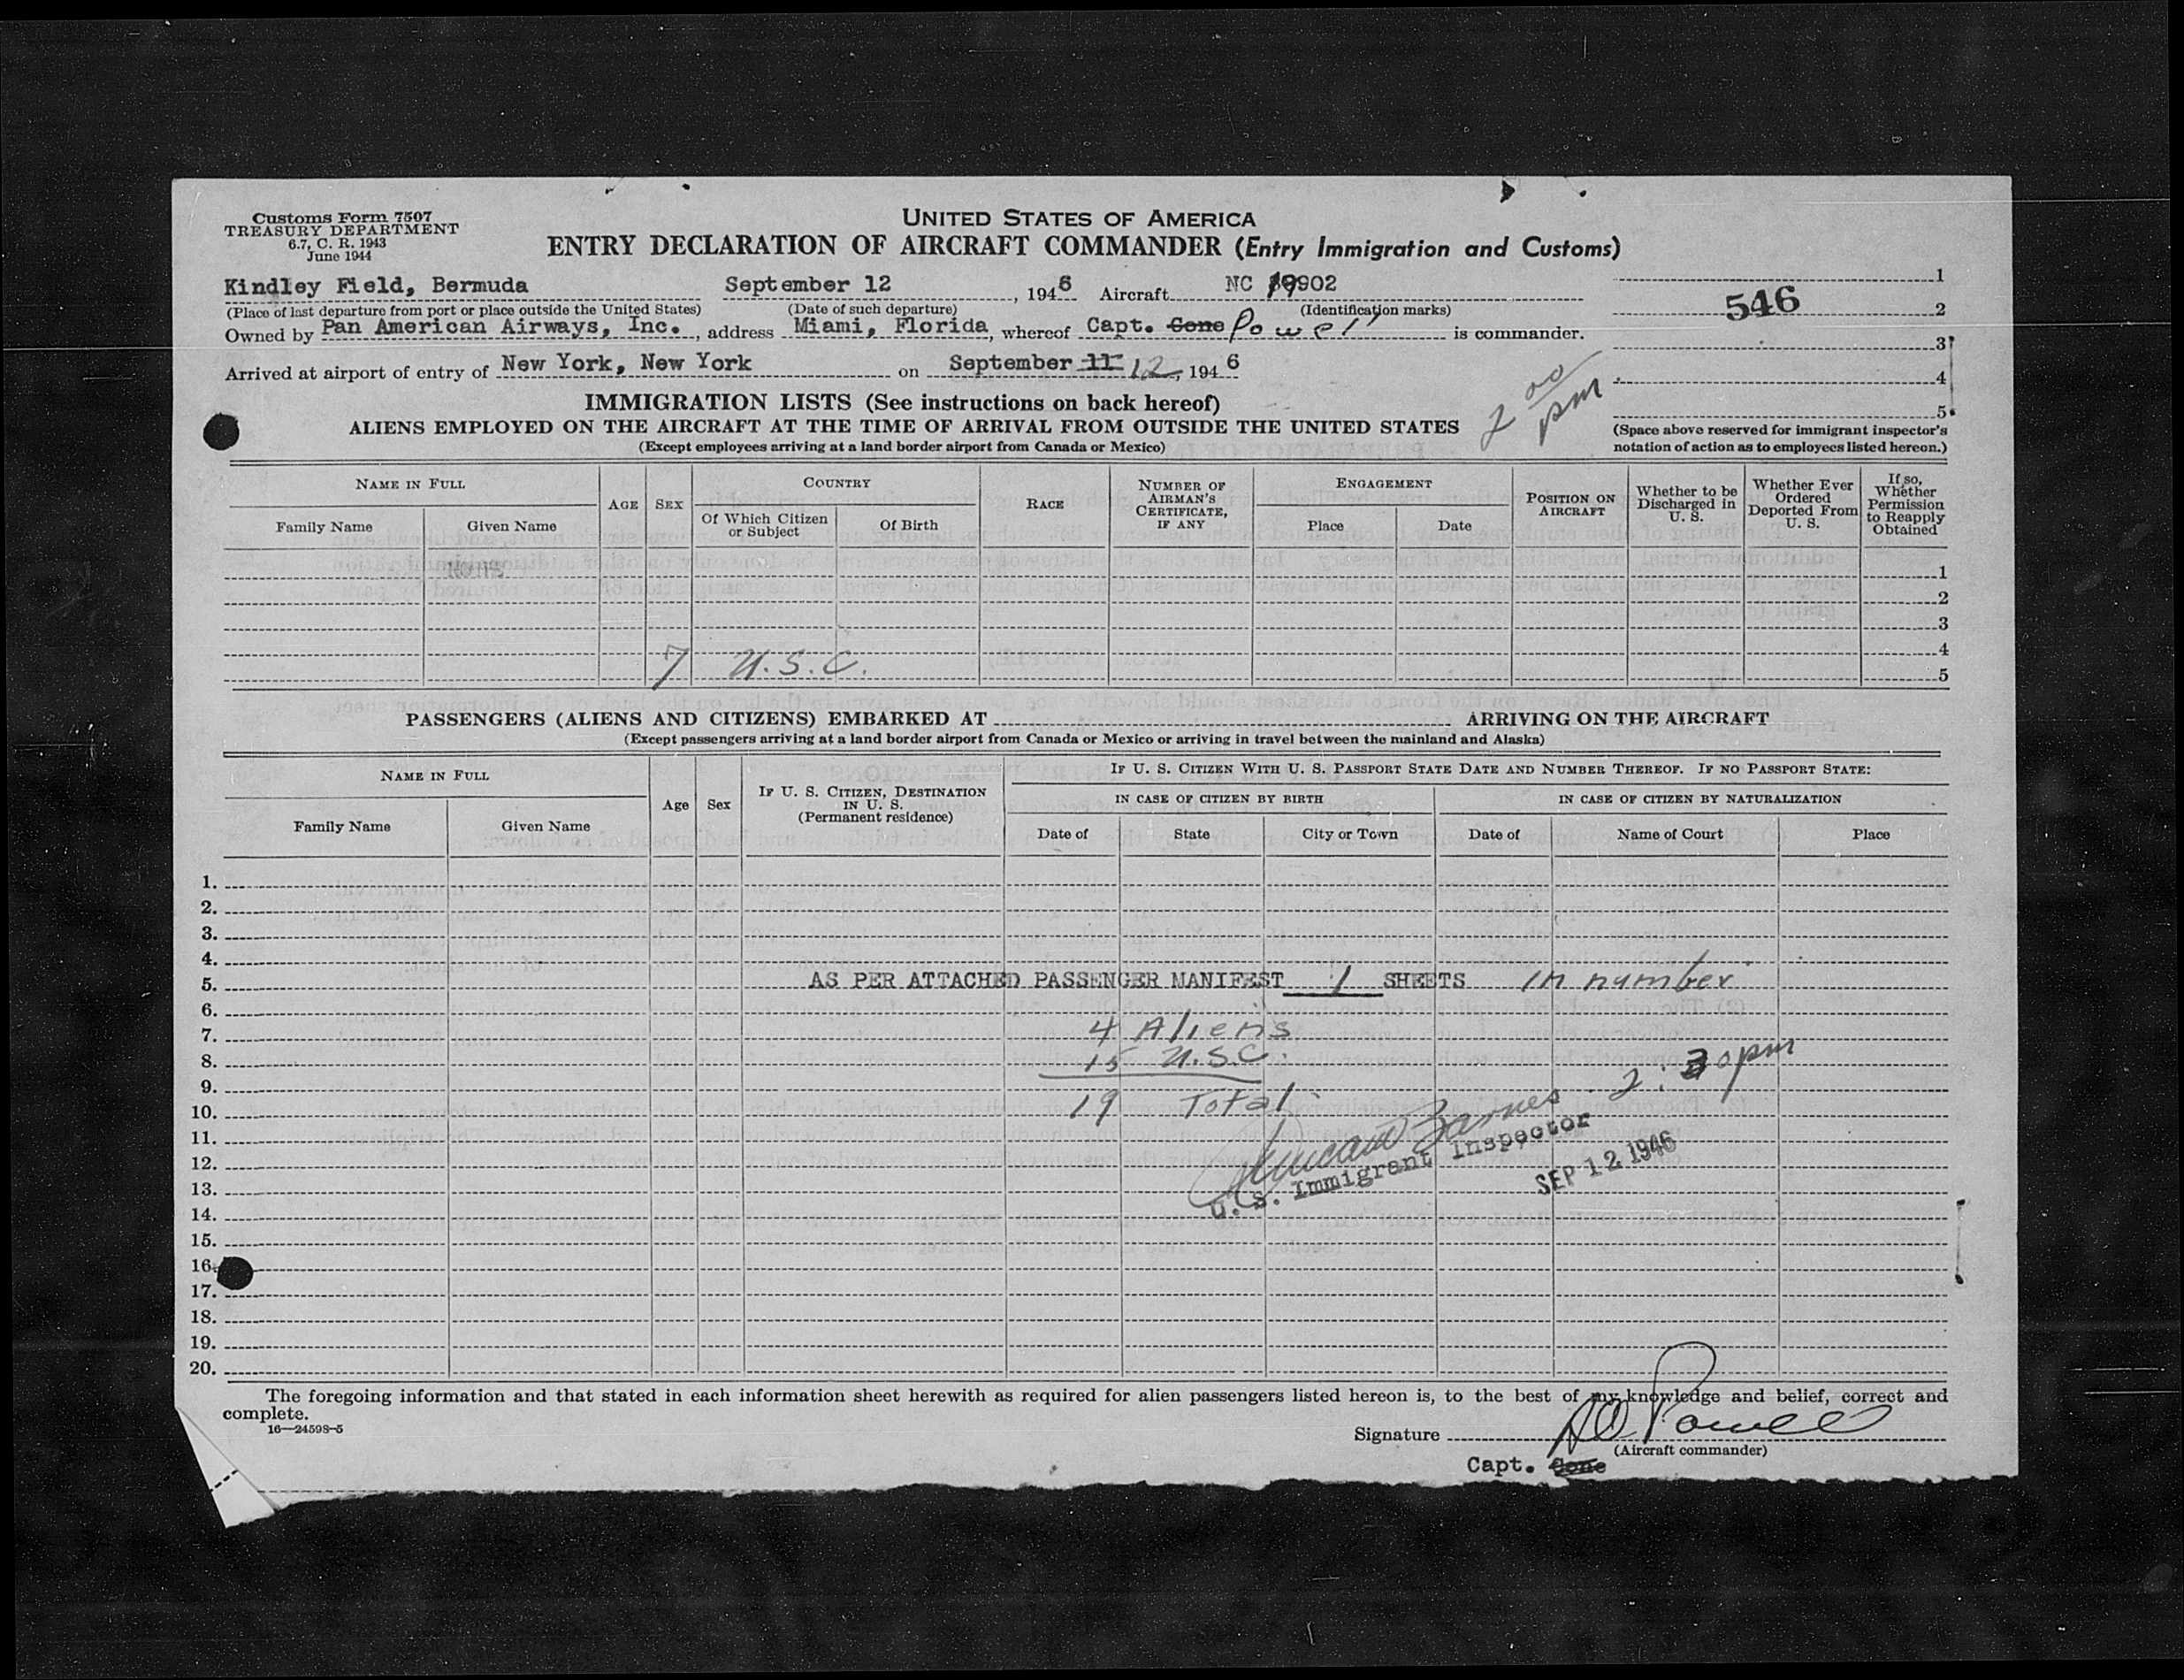 Customs Form 7507
TREASURY DEPARTMENT
6.7, C. R. 1943
June 1944
UNITED STATES OF AMERICA
ENTRY DECLARATION OF AIRCRAFT COMMANDER (Entry Immigration and Customs)
Kindley Field, Bermuda September 12, 1946 Aircraft NC 902
(Place of last departure from port or place outside the United States) (Date of such departure) (Identification marks)
Owned by Pan American Airways, Inc., address Miami, Florida, whereof Capt. Gone Powell is commander.
Arrived at airport of entry of New York, New York on September 11 12, 1946
1
546
2
3
4
5
2 00 pm
(Space above reserved for immigrant inspector's
notation of action as to employees listed hereon.)
IMMIGRATION LISTS (See instructions on back hereof)
ALIENS EMPLOYED ON THE AIRCRAFT AT THE TIME OF ARRIVAL FROM OUTSIDE THE UNITED STATES
(Except employees arriving at a land border airport from Canada or Mexico)
NAME IN FULL
Family Name Given Name
AGE SEX
COUNTRY
Of Which Citizen or Subject Of Birth
RACE
NUMBER OF AIRMAN'S CERTIFICATE, IF ANY
ENGAGEMENT
Place Date
POSITION ON AIRCRAFT
Whether to be Discharged in U. S.
Whether Ever Ordered Deported From U. S.
If so, Whether Permission to Reapply Obtained
NONE
1
2
3
4
7 U.S.C.
5
PASSENGERS (ALIENS AND CITIZENS) EMBARKED AT ARRIVING ON THE AIRCRAFT
(Except passengers arriving at a land border airport from Canada or Mexico or arriving in travel between the mainland and Alaska)
NAME IN FULL
Family Name Given Name
Age Sex
IF U. S. CITIZEN, DESTINATION IN U. S. (Permanent residence)
IF U. S. CITIZEN WITH U. S. PASSPORT STATE DATE AND NUMBER THEREOF. IF NO PASSPORT STATE:
IN CASE OF CITIZEN BY BIRTH IN CASE OF CITIZEN BY NATURALIZATION
Date of State City or Town Date of Name of Court Place
1.
2.
3.
4.
5. AS PER ATTACHED PASSENGER MANIFEST 1 SHEETS in number
6.
7. 4 Aliens
8. 15 U.S.C.
9. 2:30pm
10. 19 Total
11. Duncan Barnes
12. U. S. Immigrant Inspector SEP 12 1946
13.
14.
15.
16.
17.
18.
19.
20.
The foregoing information and that stated in each information sheet herewith as required for alien passengers listed hereon is, to the best of my knowledge and belief, correct and
complete.
16—24598-5
Signature Powell
(Aircraft commander)
Capt. Gone